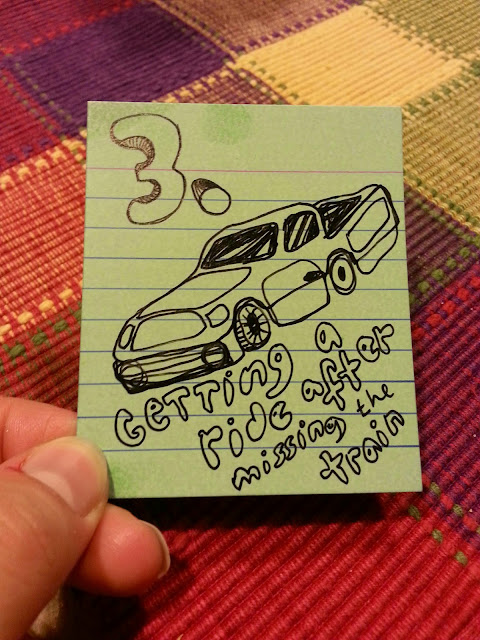 3.
Getting a
ride after
missing the
train